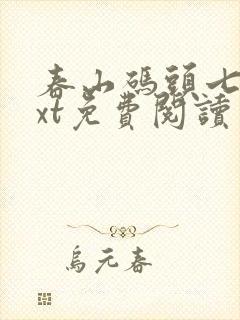 春山碼頭七
xt免費閱讀
烏元春